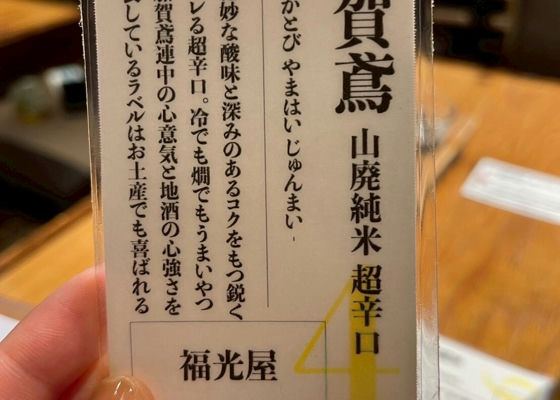 賀鳶 山廃純米 超辛口
かとび やまはい じゅんまい
妙な酸味と深みのあるコクをもつ鋭く
レる超辛口。冷でも燗でもうまいやつ
加賀鳶連中の心意気と地酒の心強さを
しているラベルはお土産でも喜ばれる
福光屋
4